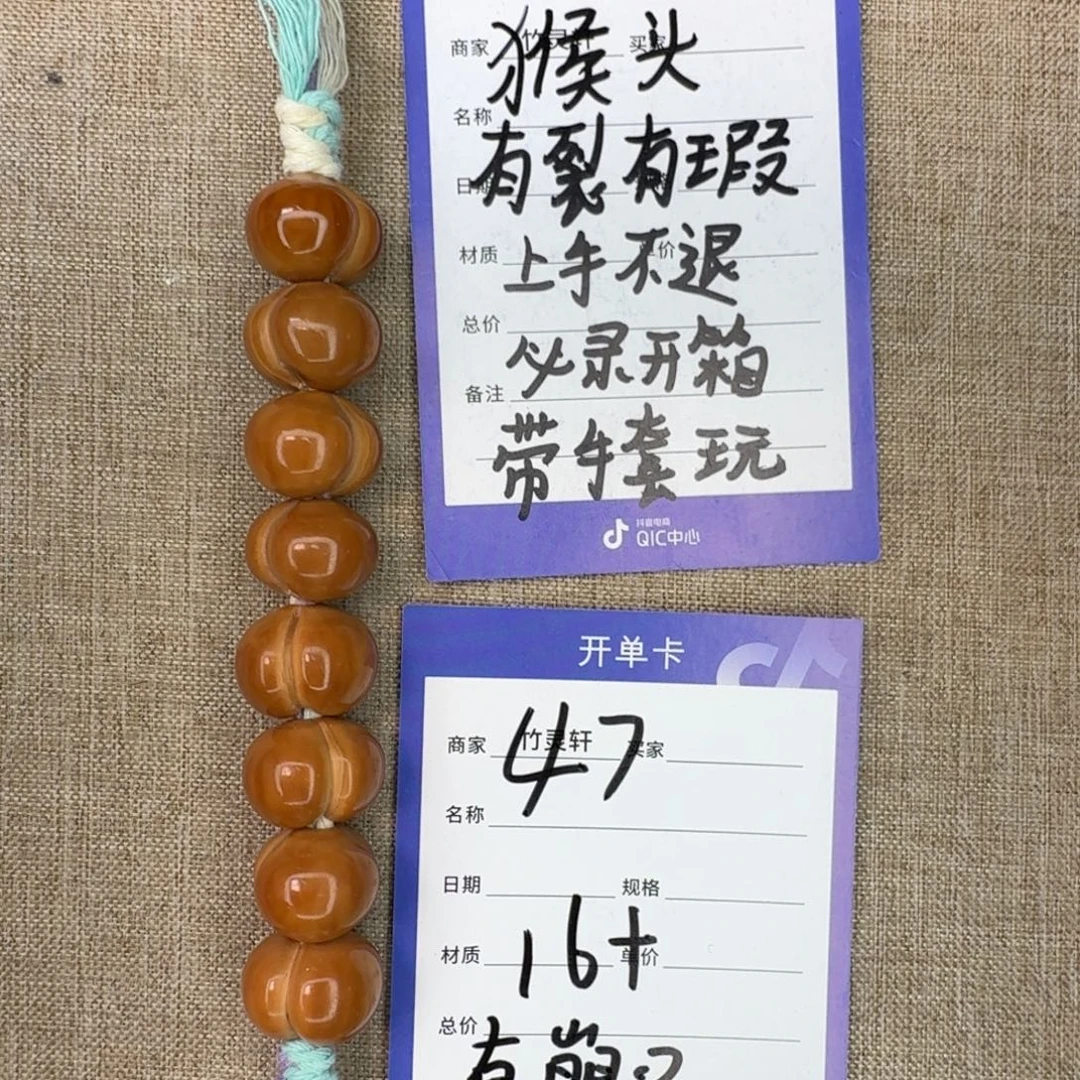 猴头
商家 竹灵轩 买家
名称
有裂有瑕
日期
上手不退
材质 单价
总价
必录开箱
备注
带手套玩
抖音电商
QIC中心
开单卡
47
商家 竹灵轩 买家
名称
日期 规格
16+
材质 单价
总价
有崩